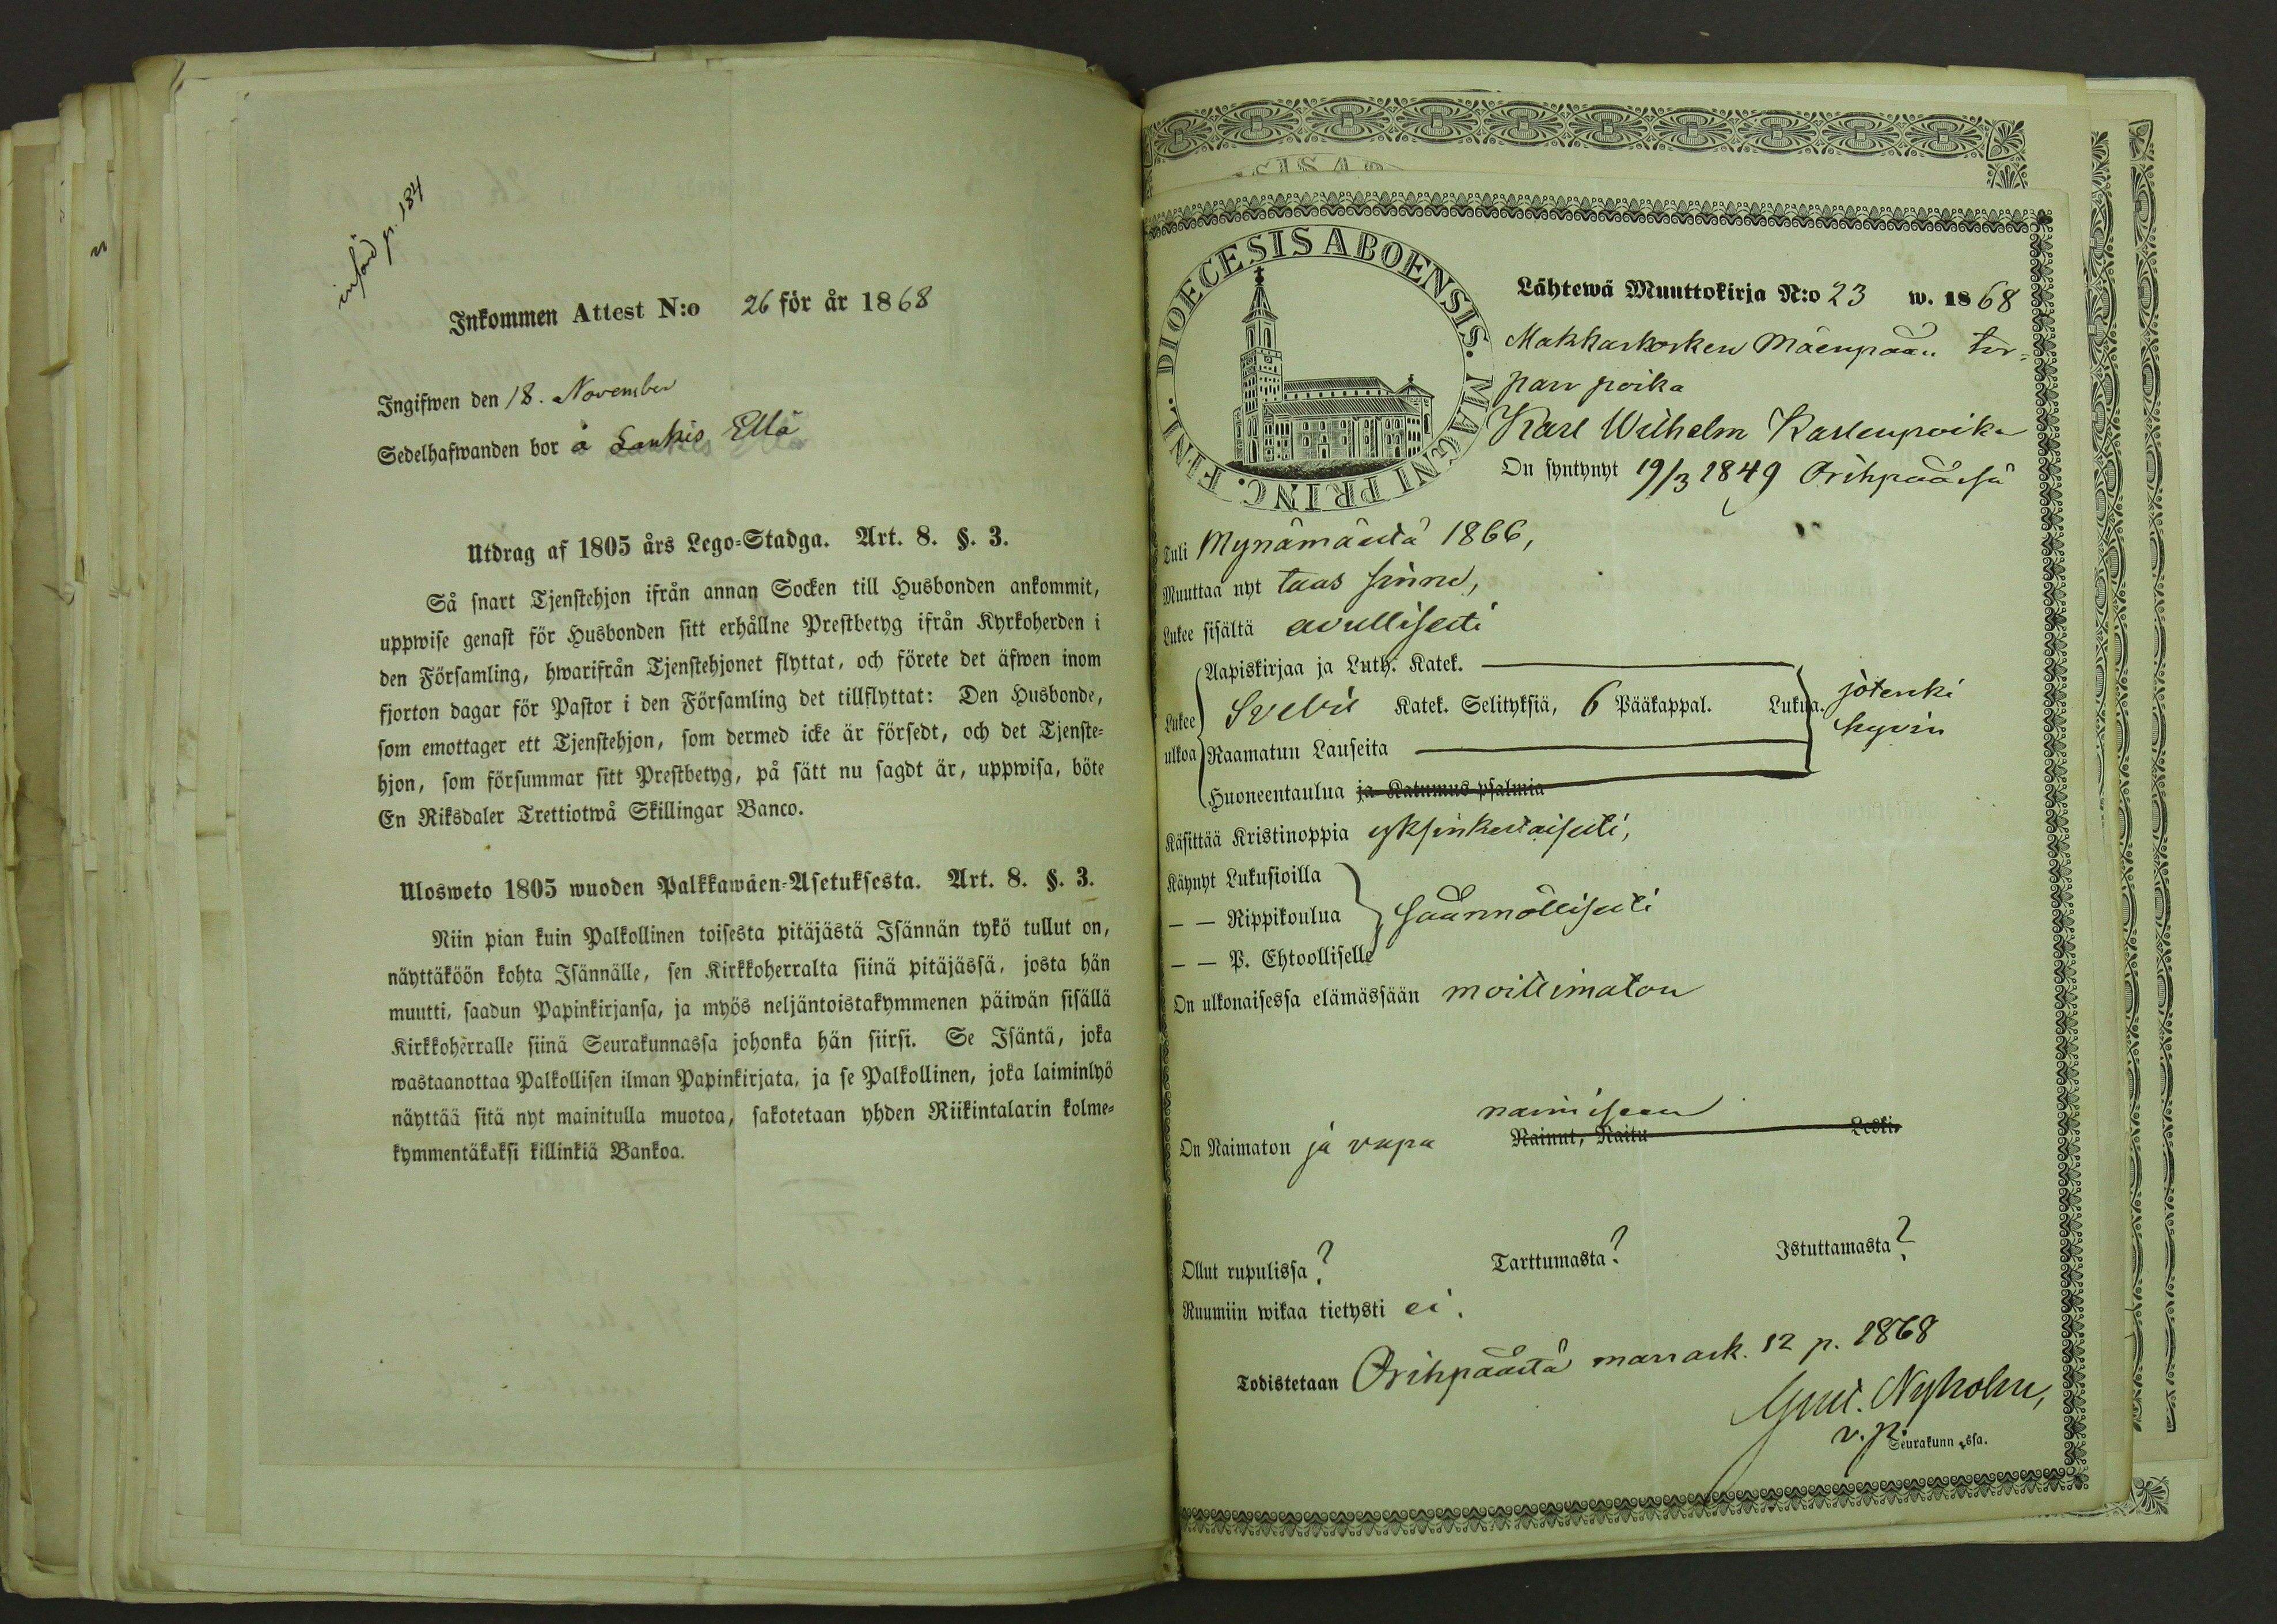 införd p. 184
Inkommen Attest N:o 26 för år 1868
Ingifwen den 18. November
Sedelhafwanden bor å Laukis Ellä
Utdrag af 1805 års Lego=Stadga. Art. 8. §. 3.
Så snart Tjenstehjon ifrån annan Socken till Husbonden ankommit,
uppwise genast för Husbonden sitt erhållne Prestbetyg ifrån Kyrkoherden i
den Församling, hwarifrån Tjenstehjonet flyttat, och förete det äfwen inom
fjorton dagar för Pastor i den Församling det tillflyttat: Den Husbonde,
som emottager ett Tjenstehjon, som dermed icke är försedt, och det Tjenste=
hjon, som försummar sitt Prestbetyg, på sätt nu sagdt är, uppwisa, böte
En Riksdaler Trettiotwå Skillingar Banco.
Ulosweto 1805 wuoden Palkkawäen=Asetuksesta. Art. 8. §. 3.
Niin pian kuin Palkollinen toisesta pitäjästä Isännän tykö tullut on,
näyttäköön kohta Isännälle, sen Kirkkoherralta siinä pitäjässä, josta hän
muutti, saadun Papinkirjansa, ja myös neljäntoistakymmenen päiwän sisällä
Kirkkoherralle siinä Seurakunnassa johonka hän siirsi. Se Isäntä, joka
wastaanottaa Palkollisen ilman Papinkirjata, ja se Palkollinen, joka laiminlyö
näyttää sitä nyt mainitulla muotoa, sakotetaan yhden Riikintalarin kolme=
kymmentäkaksi killinkiä Bankoa.
DIOECESIS ABOENSIS. MAGNI PRINC. FINL.
Lähtewä Muuttokirja N:o 23 w. 1868
Makkarkosken Mäenpään tor=
parr poika
Karl Wilhelm Karlenpoika
On syntynyt 19/3 1849 Orihpäässä
Tuli Mynämäestä 1866,
Muuttaa nyt taas sinne,
Lukee sisältä avullisesti
Aapiskirjaa ja Luth. Katek.
Lukee ulkoa Svebil Katek. Selityksiä, 6 Pääkappal. Lukua. jotenki hyvin
Raamatun Lauseita
Huoneentaulua ja Katumus psalmia
Käsittää Kristinoppia yksinkertaisesti,
Käynyt Lukusioilla
— — Rippikoulua säännöllisesti
— — P. Ehtoolliselle
On ulkonaisessa elämässään moittimaton
naimiseen
On Naimaton ja vapa Nainut, Naitu Leski,
Ollut rupulissa? Tarttumasta? Istuttamasta?
Ruumiin wikaa tietysti ei.
Todistetaan Orihpäästä marrask. 12 p. 1868
Gust. Nyholm,
v. p.
Seurakunn ssa.